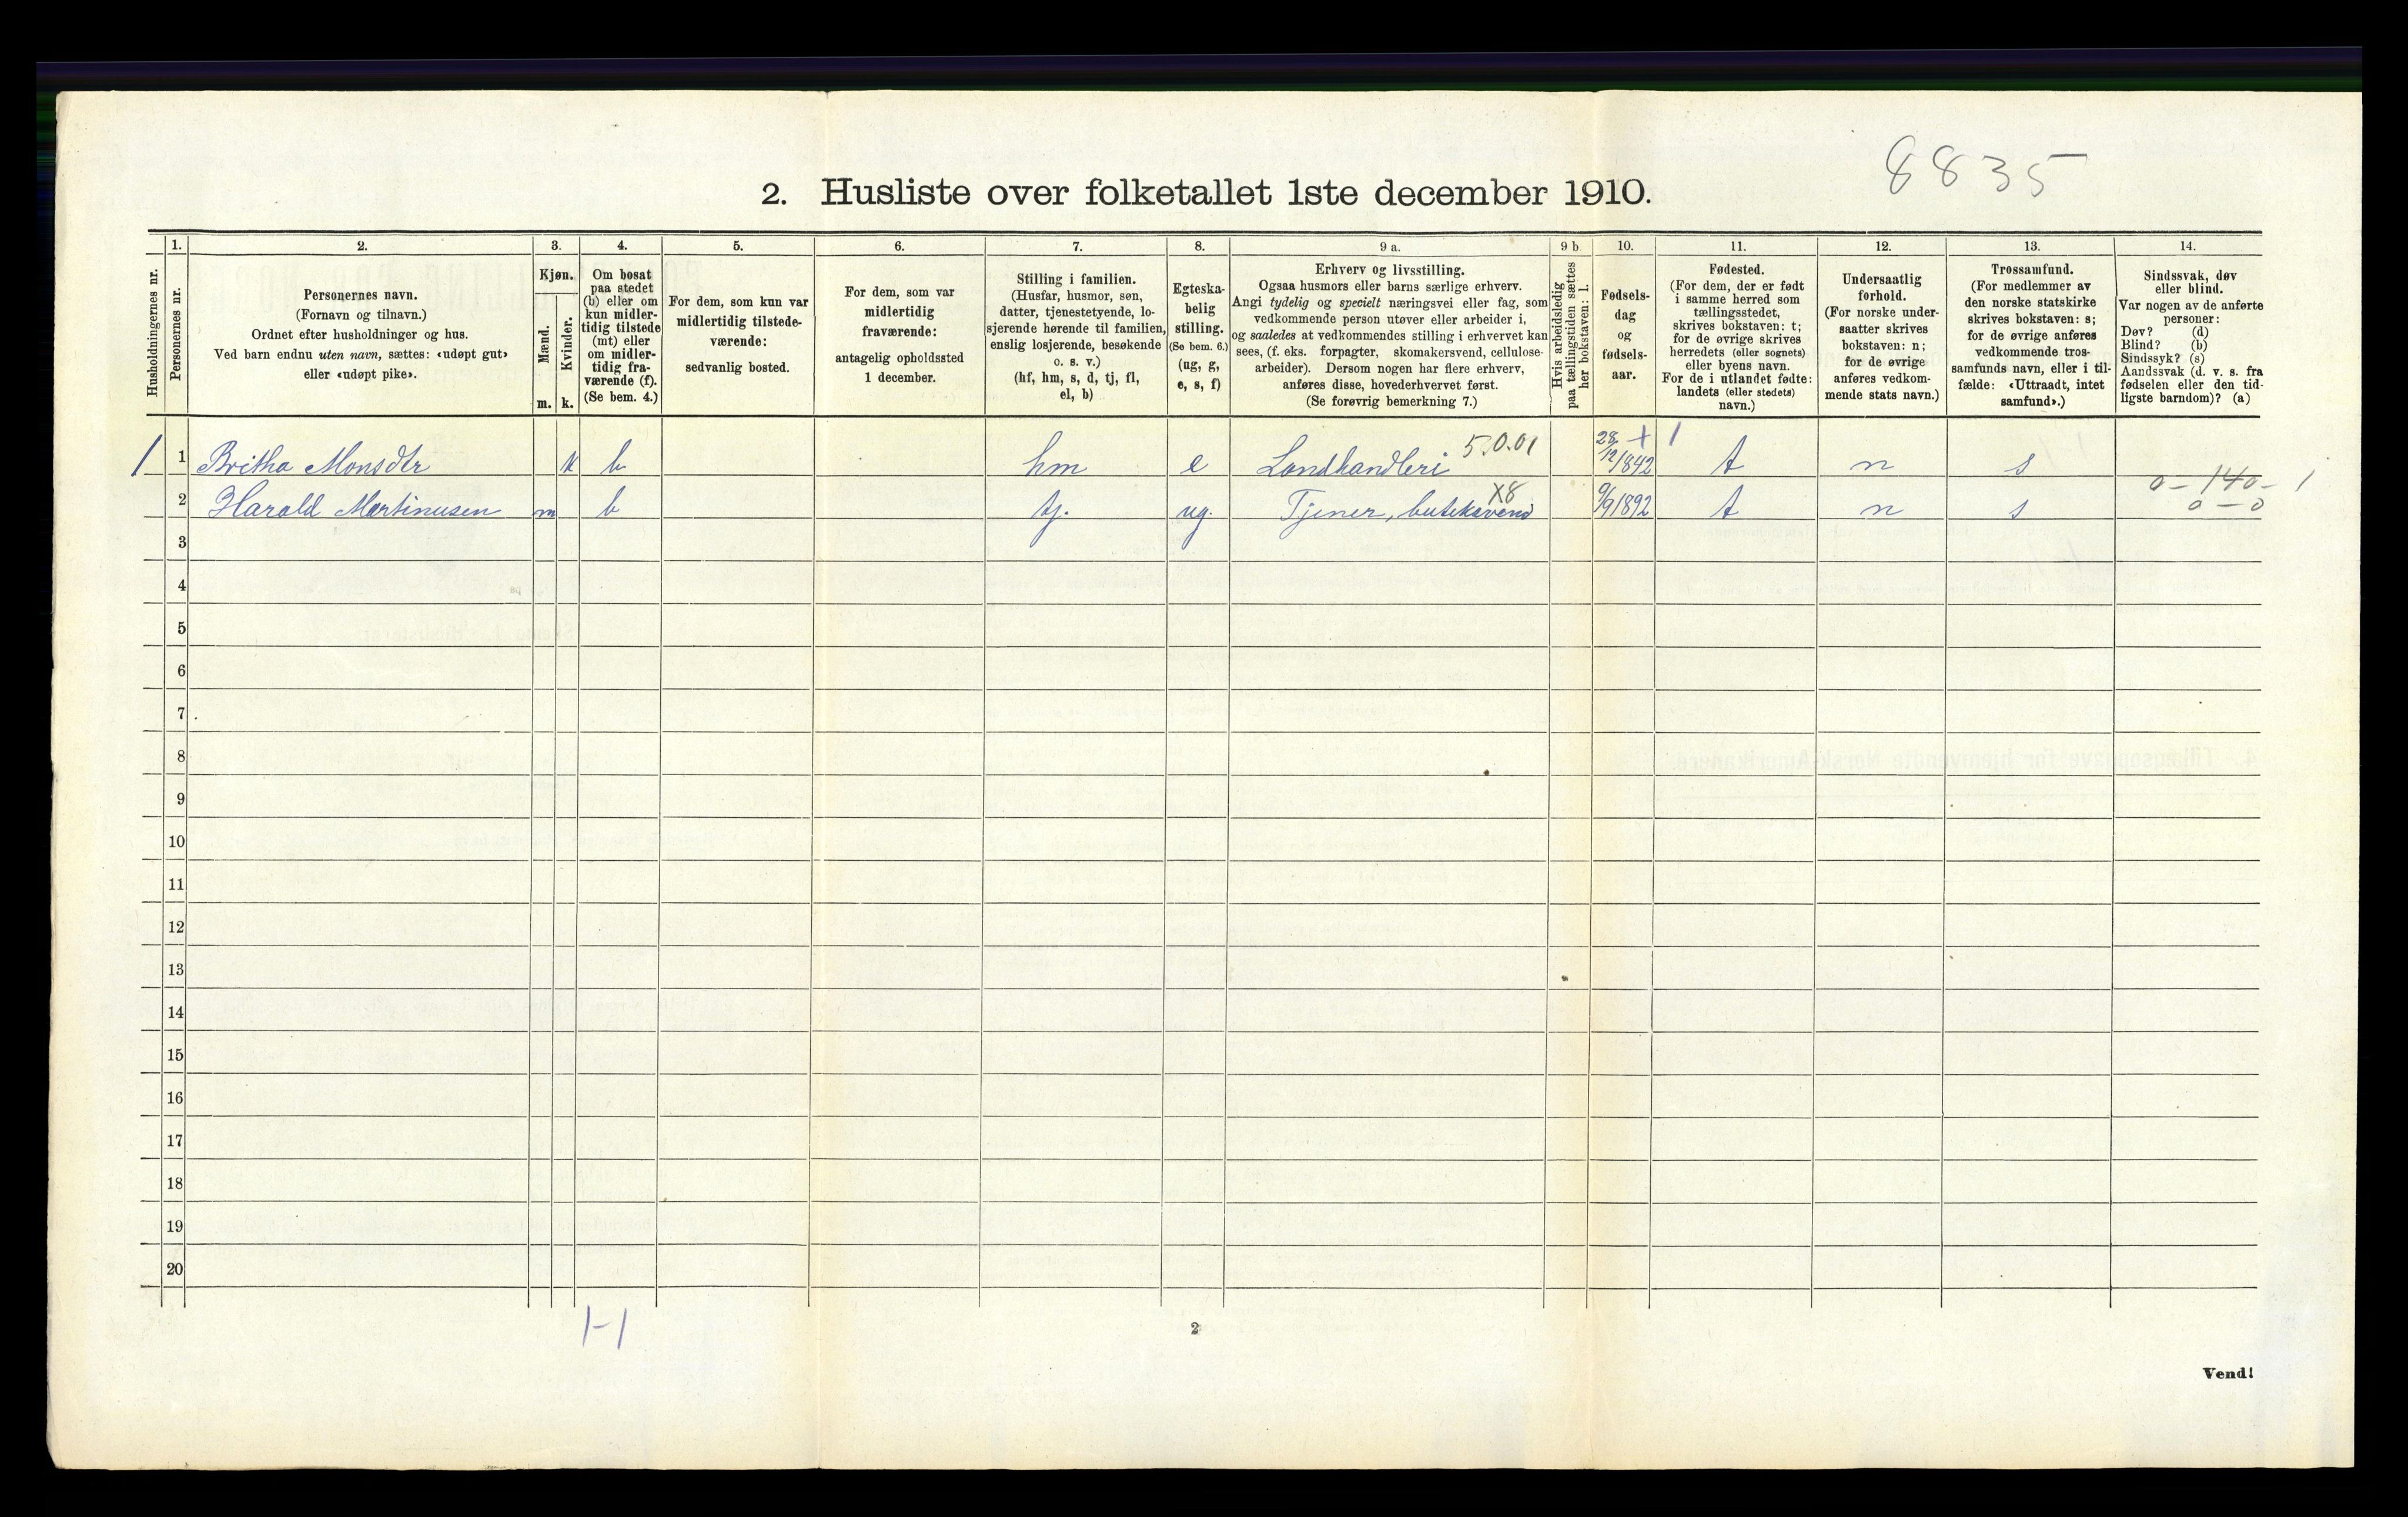 8835
2. Husliste over folketallet 1ste december 1910.
Husholdningernes nr.
1.
Personernes nr.
2.
Personernes navn.
(Fornavn og tilnavn.)
Ordnet efter husholdninger og hus.
Ved barn endnu uten navn, sættes: «udøpt gut»
eller «udøpt pike».
3.
Kjøn.
Mænd.
Kvinder.
m. k.
4.
Om bosat
paa stedet
(b) eller om
kun midler-
tidig tilstede
(mt) eller
om midler-
tidig fra-
værende (f).
(Se bem. 4.)
5.
For dem, som kun var
midlertidig tilstede-
værende:
sedvanlig bosted.
6.
For dem, som var
midlertidig
fraværende:
antagelig opholdssted
1 december.
7.
Stilling i familien.
(Husfar, husmor, søn,
datter, tjenestetyende, lo-
sjerende hørende til familien,
enslig losjerende, besøkende
o. s. v.)
(hf, hm, s, d, tj, fl,
el, b)
8.
Egteska-
belig
stilling.
(Se bem. 6.)
(ug, g,
e, s, f)
9 a.
Erhverv og livsstilling.
Ogsaa husmors eller barns særlige erhverv.
Angi tydelig og specielt næringsvei eller fag, som
vedkommende person utøver eller arbeider i,
og saaledes at vedkommendes stilling i erhvervet kan
sees, (f. eks. forpagter, skomakersvend, cellulose-
arbeider). Dersom nogen har flere erhverv,
anføres disse, hovederhvervet først.
(Se forøvrig bemerkning 7.)
9 b.
Hvis arbeidsledig
paa tællingstiden sættes
her bokstaven: l.
10.
Fødsels-
dag
og
fødsels-
aar.
11.
Fødested.
(For dem, der er født
i samme herred som
tællingsstedet,
skrives bokstaven: t;
for de øvrige skrives
herredets (eller sognets)
eller byens navn.
For de i utlandet fødte:
landets (eller stedets)
navn.)
12.
Undersaatlig
forhold.
(For norske under-
saatter skrives
bokstaven: n;
for de øvrige
anføres vedkom-
mende stats navn.)
13.
Trossamfund.
(For medlemmer av
den norske statskirke
skrives bokstaven: s;
for de øvrige anføres
vedkommende tros-
samfunds navn, eller i til-
fælde: «Uttraadt, intet
samfund».)
14.
Sindssvak, døv
eller blind.
Var nogen av de anførte
personer:
Døv? (d)
Blind? (b)
Sindssyk? (s)
Aandssvak (d. v. s. fra
fødselen eller den tid-
ligste barndom)? (a)
1 1 Britha Monsdtr k b hm e Landhandleri 5.0.01 28/12 1842 + 1 t n s 0 - 140 - 1
2 Harald Martinusen m b tj. ug. Tjener, buteksvend X8 9/9 1892 t n s 0 - 0
3
4
5
6
7
8
9
10
11
12
13
14
15
16
17
18
19
20
1-1
2
Vend!